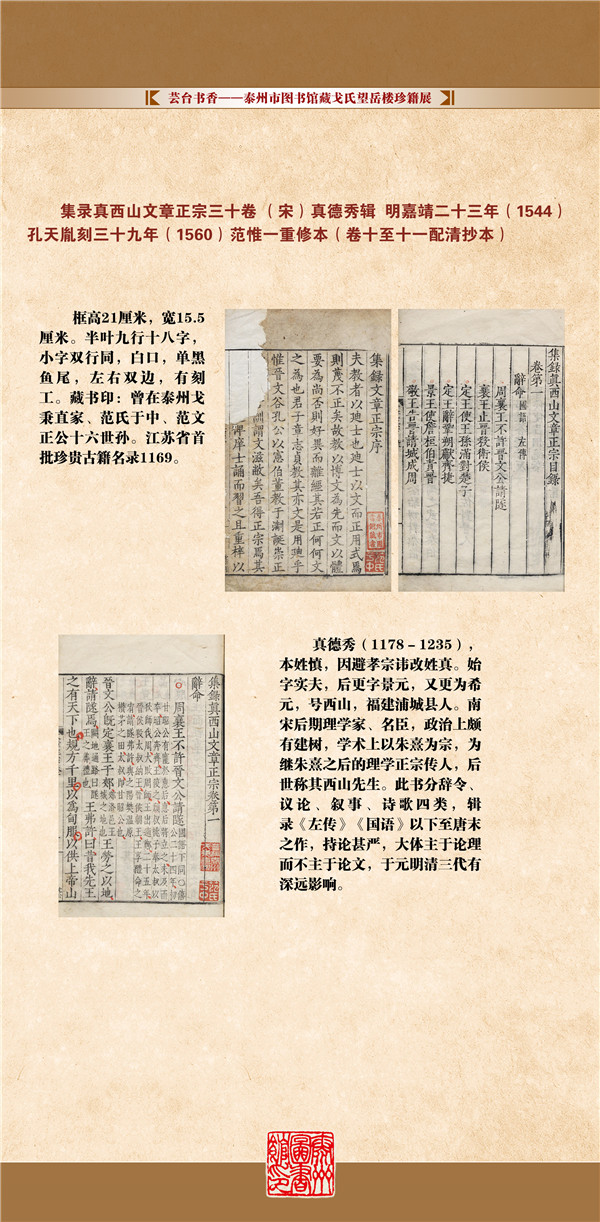 芸台书香——泰州市图书馆藏戈氏望岳楼珍籍展
集录真西山文章正宗三十卷（宋）真德秀辑 明嘉靖二十三年（1544）
孔天胤刻三十九年（1560）范惟一重修本（卷十至十一配清抄本）
框高21厘米，宽15.5
厘米。半叶九行十八字，
小字双行同，白口，单黑
鱼尾，左右双边，有刻
工。藏书印：曾在泰州戈
秉直家、范氏于中、范文
正公十六世孙。江苏省首
批珍贵古籍名录1169。
集錄文章正宗序
夫教者以迪士也迪士以文而正用式焉
則蔑不正矣故教以博文為先而文以體
要為尚否則好異而離經其若正何何文
之為也君子章志貞教其亦文是用迪乎
惟晉文谷孔公以憲伯董教于浙誕崇正
謂文滋敝矣吾得正宗焉其
庠士誦而習之且重梓以
集錄真西山文章正宗目錄
卷第一
辭命 國語 左傳
周襄王不許晉文公請隧
襄王止晉殺衛侯
定王使王孫滿對楚子
定王辭鞏朔獻齊捷
景王使詹桓伯責晉
敬王告晉請城成周
真德秀（1178－1235），
本姓慎，因避孝宗讳改姓真。始
字实夫，后更字景元，又更为希
元，号西山，福建浦城县人。南
宋后期理学家、名臣，政治上颇
有建树，学术上以朱熹为宗，为
继朱熹之后的理学正宗传人，后
世称其西山先生。此书分辞令、
议论、叙事、诗歌四类，辑
录《左传》《国语》以下至唐末
之作，持论甚严，大体主于论理
而不主于论文，于元明清三代有
深远影响。
集錄真西山文章正宗卷第一
辭命
周襄王不許晉文公請隧
晉文公既定襄王于郟
王勞之以地
辭請隧焉
王弗許曰昔我先王
之有天下也規方千里以為甸服以供上帝山
泰州
圖書
館印